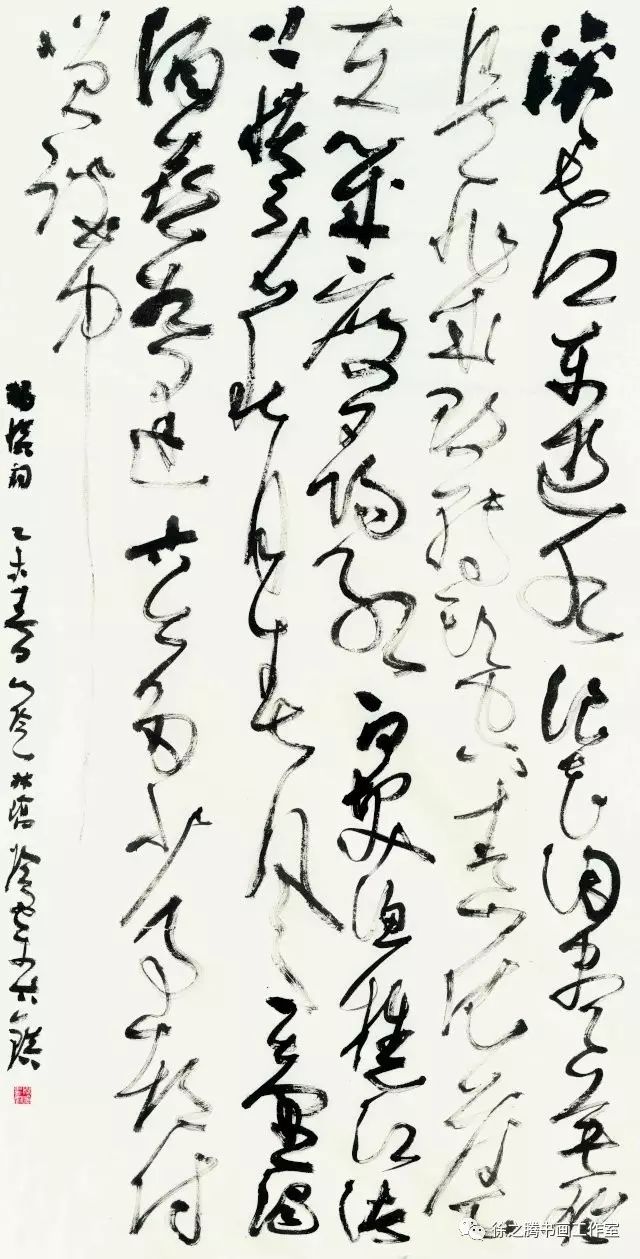 滚滚长江东逝水浪花淘尽英雄
是非成败转头空青山依旧
在几度夕阳红白发渔樵江渚
上惯看秋月春风一壶浊
酒喜相逢古今多少事都付
笑谈中
杨慎词 乙未春日
徐之腾书画工作室